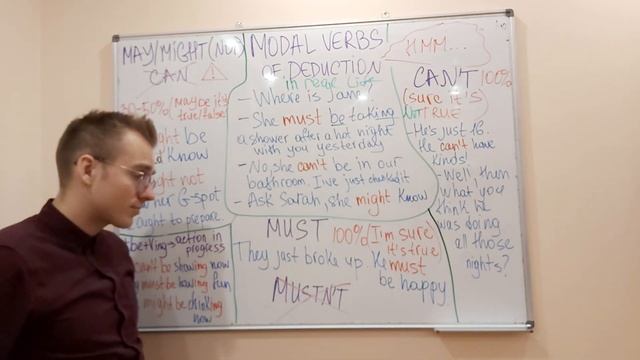 MAY/MIGHT (NOT)
CAN
30-50% /maybe it's
true/false
might be
know
might not
her G-spot
ought to prepare
be+Ving → action in
progress
can't be showing now
must be having fun
might be drinking
now
MODAL VERBS
OF DEDUCTION
in real life
- Where is Jane?
- She must be taking
a shower after a hot night
with you yesterday
- No, she can't be in our
bathroom. I've just checked it
- Ask Sarah, she might know
HMM...
CAN'T 100%
(sure it's)
NOT TRUE
- He's just 16.
He can't have
kinds!
- Well, then
what you
think he
was doing
all those
nights?
MUST 100% (I'm sure
it's true)
They just broke up. He must
be happy
MUSTN'T